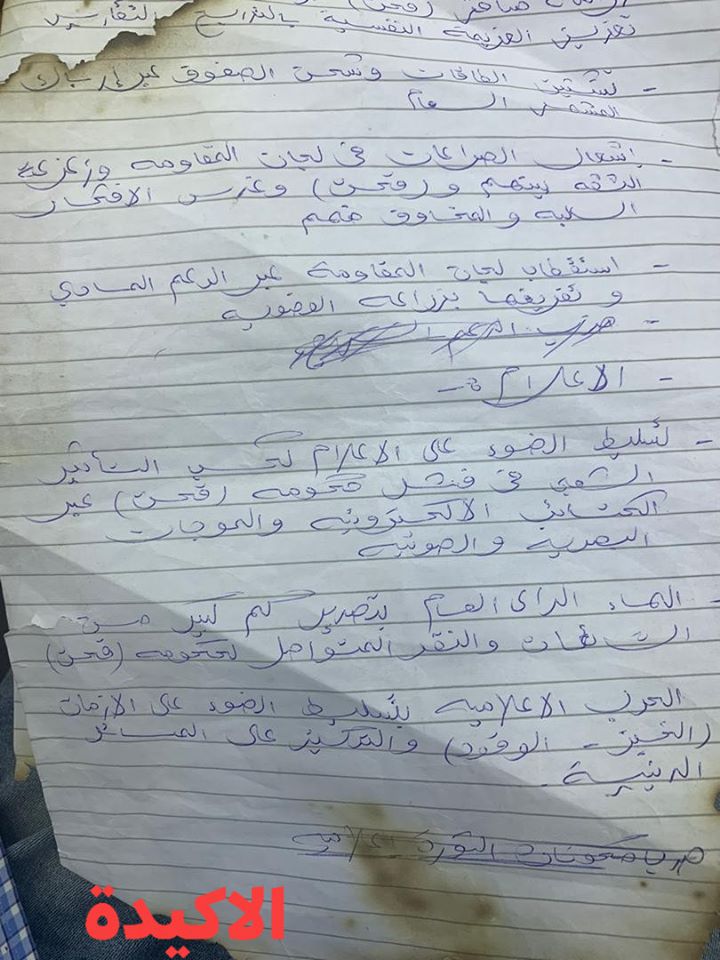 تعزيز الهزيمة النفسية بالتراجع
- تشتيت الطاقات وشحن الصفوف عبر إرباك
المشهد العام
- إشعال الصراعات في لجان المقاومه وزعزعة
الثقه بينهم و (قحت) وغرس الافكار
السلبه والمخاوف منهم
- استقطاب لجان المقاومة عبر الدعم المادي
و تفريقها بزراعه العضويه
- ضرب
- الاعلام :-
- تسليط الضوء على الاعلام لكسب التأثير
الشعبي في فشل حكومه (قحت) عبر
الكتائب الالكترونيه والموجات
البصرية والصوتيه
- الهاء الراى العام بتصدير كم كبير من
الشائعات والنقد المتواصل لحكومه (قحت)
الحرب الاعلاميه بتسليط الضوء على الازمات
(الخبز - الوقود) والتركيز على المسائل
الدينية.
الثورة
الاكيدة